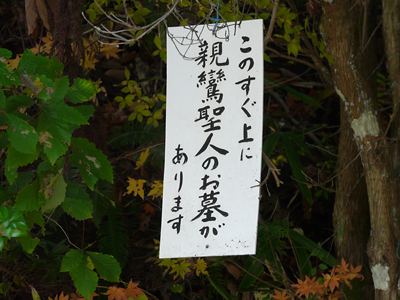 このすぐ上に
親鸞聖人のお墓が
あります